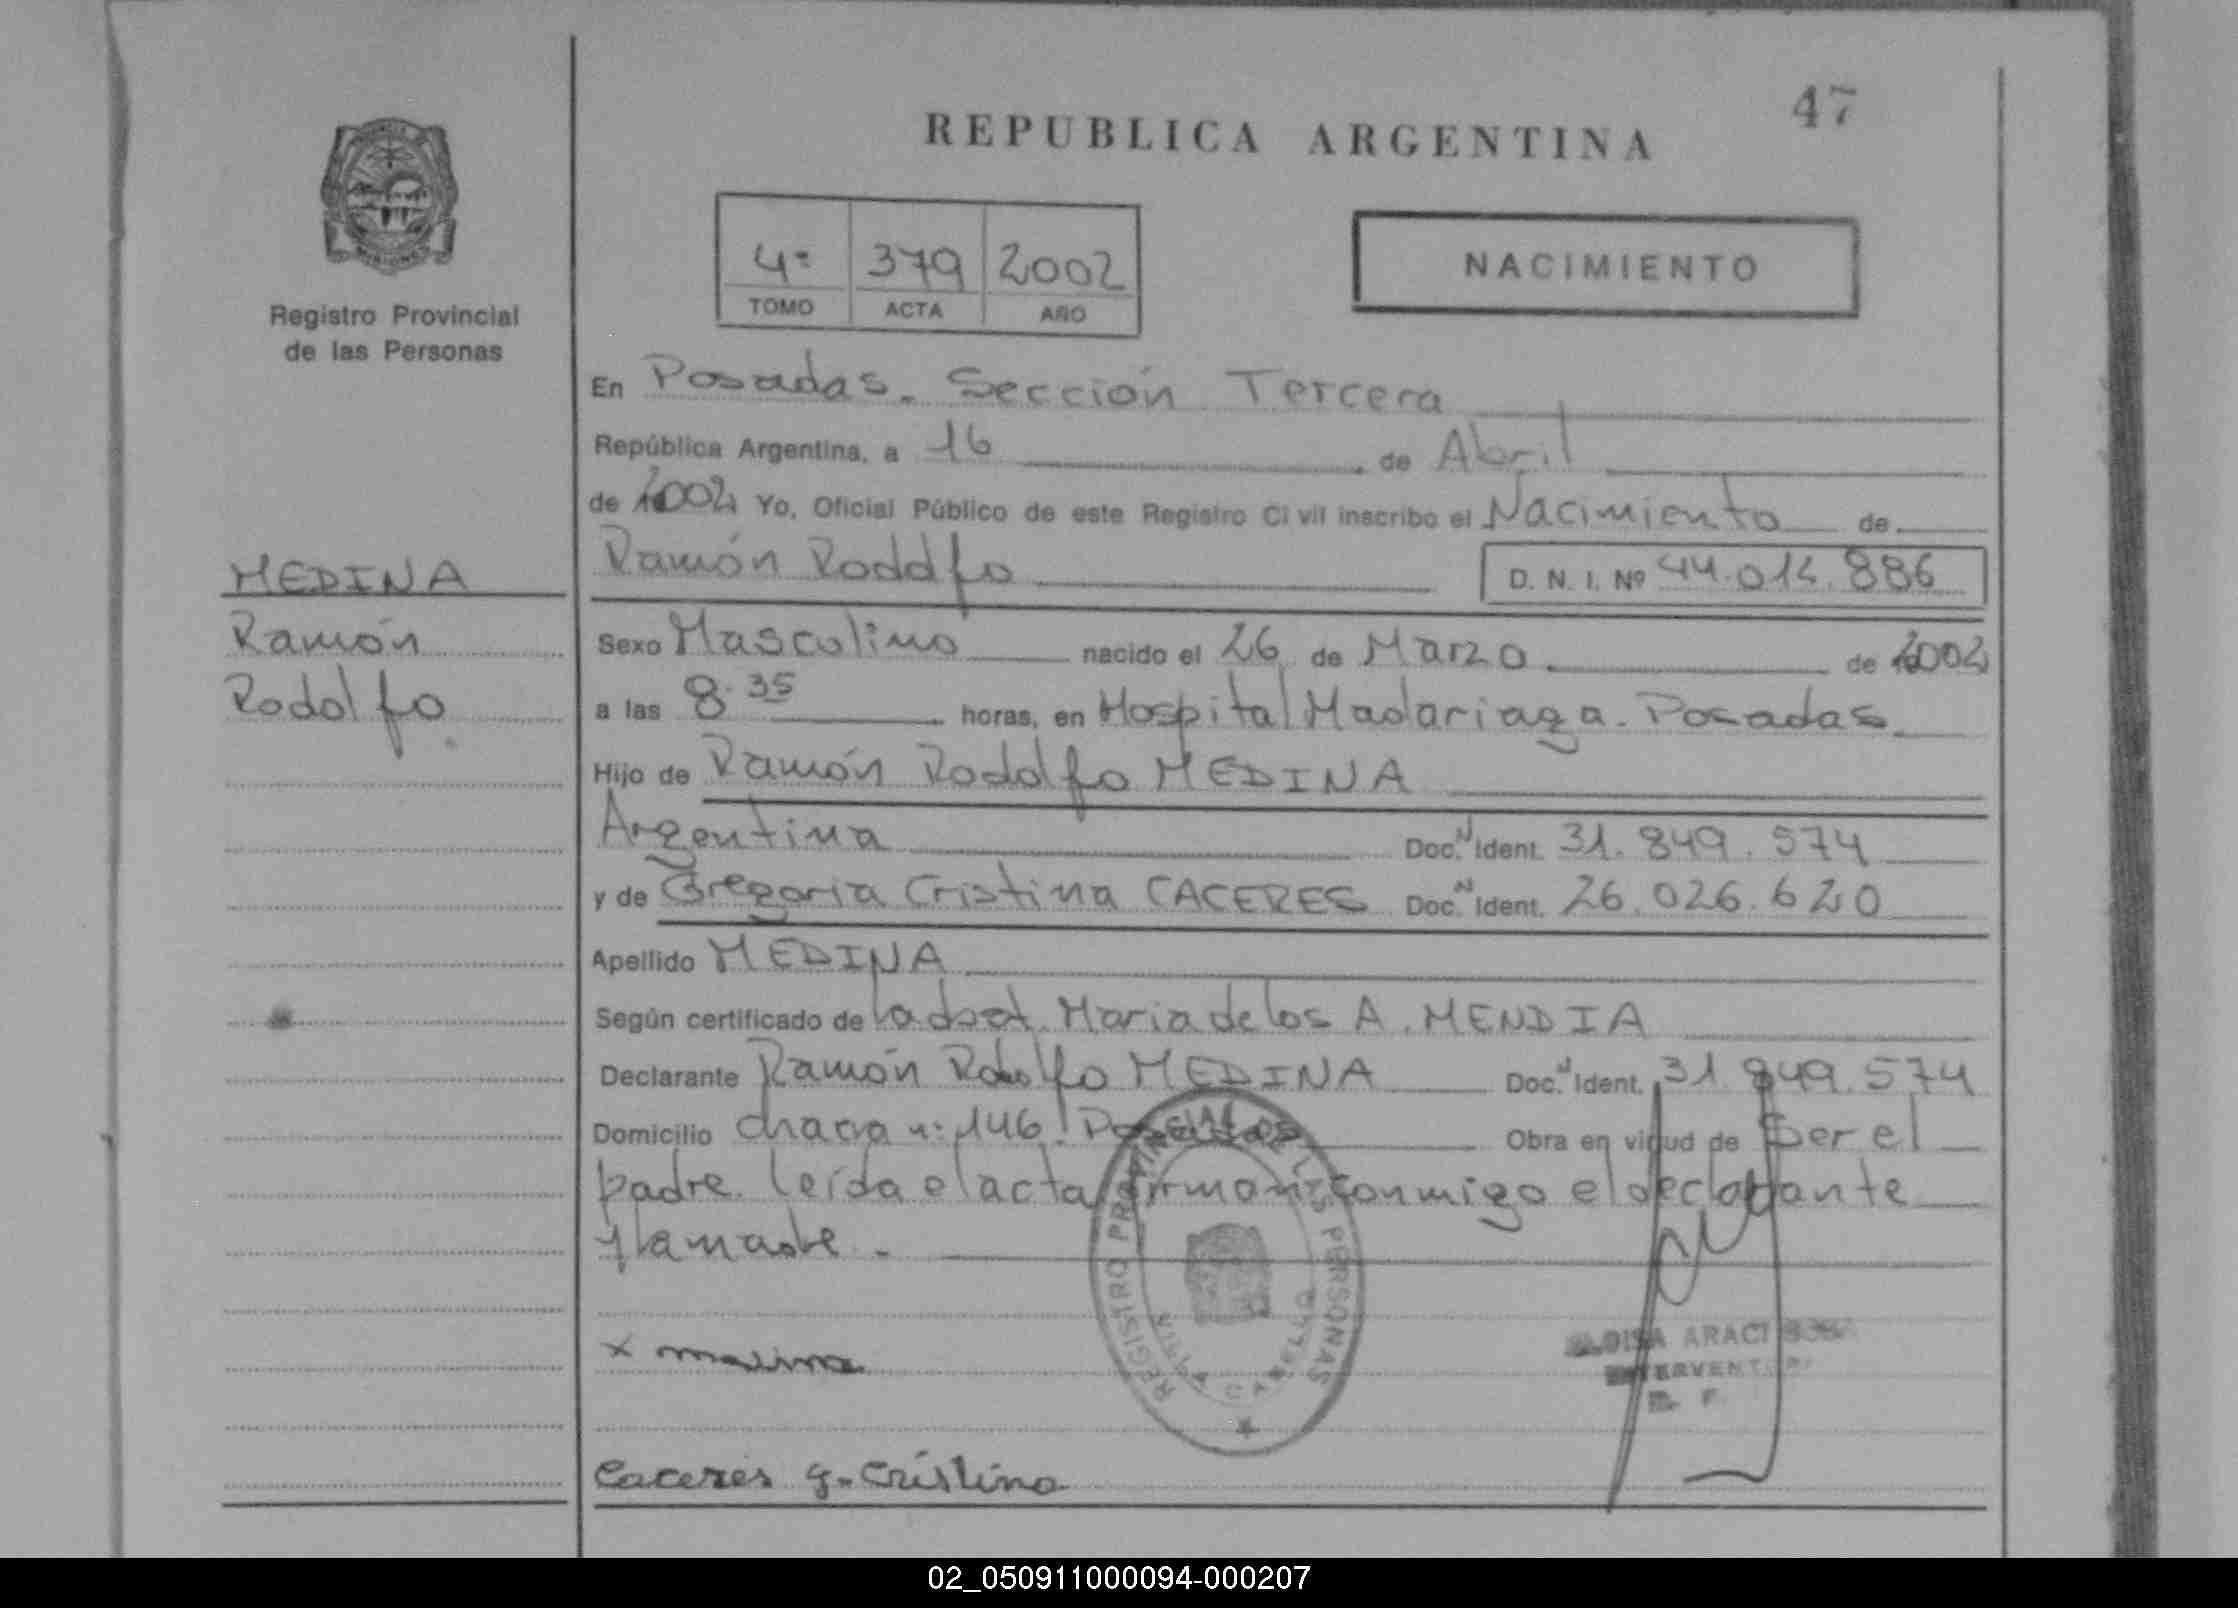 47
REPUBLICA ARGENTINA
4º 379 2002
TOMO ACTA AÑO
NACIMIENTO
Registro Provincial
de las Personas
En Posadas. Sección Tercera
República Argentina, a 16 de Abril
de 2002 Yo, Oficial Público de este Registro Civil inscribo el Nacimiento de
Ramón Rodolfo D. N. I. Nº 44.014.886
MEDINA
Ramón
Rodolfo
Sexo Masculino nacido el 26 de Marzo de 2002
a las 8.35 horas, en Hospital Madariaga. Posadas
Hijo de Ramón Rodolfo MEDINA
Argentina Doc. N Ident. 31.849.574
y de Gregoria Cristina CACERES Doc. N Ident. 26.026.620
Apellido MEDINA
Según certificado de la obst. Maria de los A. MENDIA
Declarante Ramón Rodolfo MEDINA Doc. N Ident. 31.849.574
Domicilio chacra nº 146. Posadas Obra en virtud de Ser el
padre. Leída el acta firman conmigo el declarante
y la madre.
REGISTRO PROVINCIAL DE LAS PERSONAS
x medina
ARACI
INTERVENTOR
Caceres g. Cristina
02_050911000094-000207